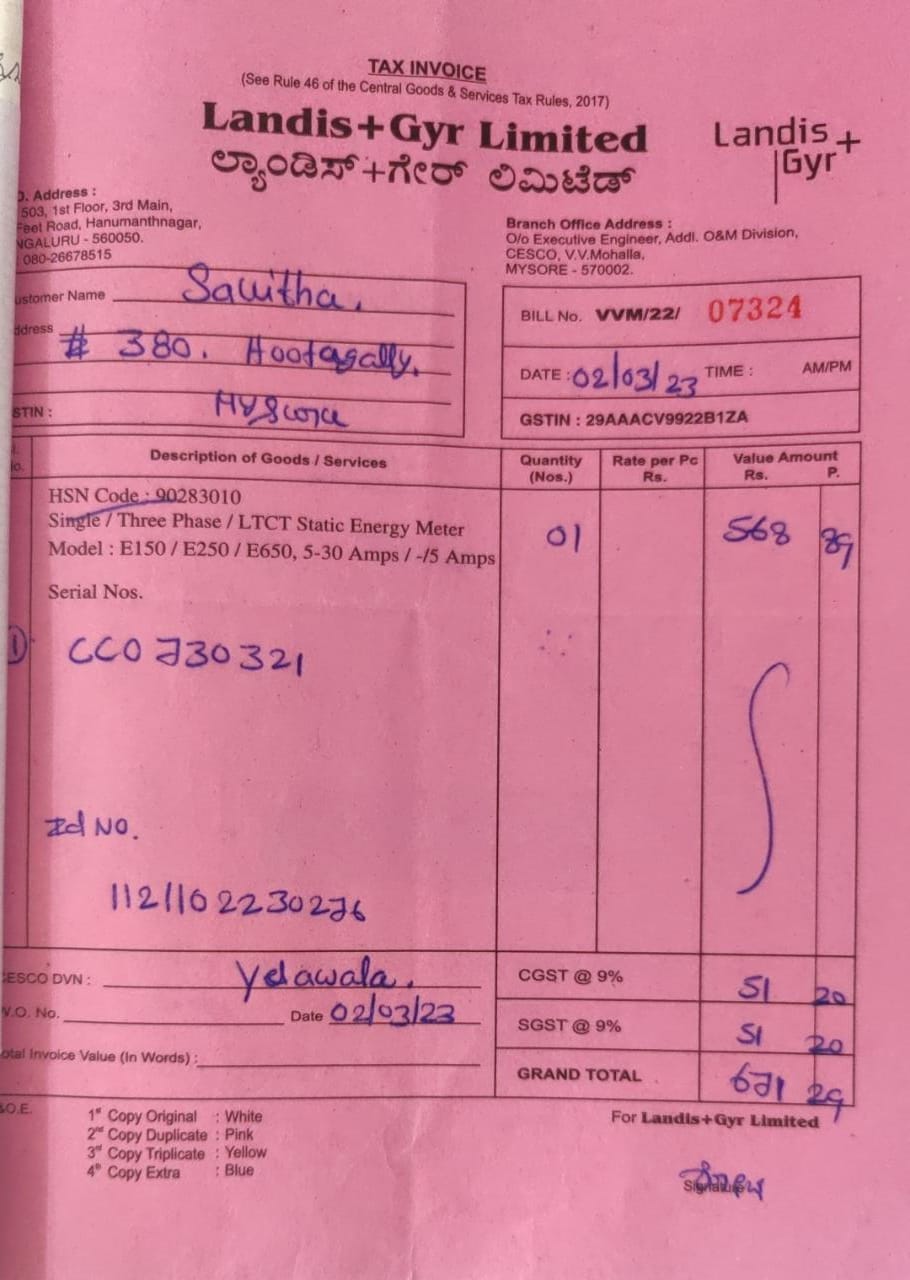 TAX INVOICE
(See Rule 46 of the Central Goods & Services Tax Rules, 2017)
Landis+Gyr Limited
ಲ್ಯಾಂಡಿಸ್+ಗೇರ್ ಲಿಮಿಟೆಡ್
Landis+
Gyr
Address :
503, 1st Floor, 3rd Main,
Feet Road, Hanumanthnagar,
NGALURU - 560050.
080-26678515
Branch Office Address :
O/o Executive Engineer, Addl. O&M Division,
CESCO, V.V.Mohalla,
MYSORE - 570002.
ustomer Name Savitha.
ddress # 380. Hootagally.
Mysore
STIN :
BILL No. VVM/22/ 07324
DATE : 02/03/23 TIME : AM/PM
GSTIN : 29AAACV9922B1ZA
o. Description of Goods / Services Quantity (Nos.) Rate per Pc Rs. Value Amount Rs. P.
HSN Code : 90283010
Single / Three Phase / LTCT Static Energy Meter
Model : E150 / E250 / E650, 5-30 Amps / -/5 Amps
01 568 89
Serial Nos.
1 CC0730321
Id NO.
1121102230276
ESCO DVN : Yelawala.
W.O. No. Date 02/03/23
otal Invoice Value (In Words) :
CGST @ 9% 51 20
SGST @ 9% 51 20
GRAND TOTAL 671 29
&O.E.
1st Copy Original : White
2nd Copy Duplicate : Pink
3rd Copy Triplicate : Yellow
4th Copy Extra : Blue
For Landis+Gyr Limited